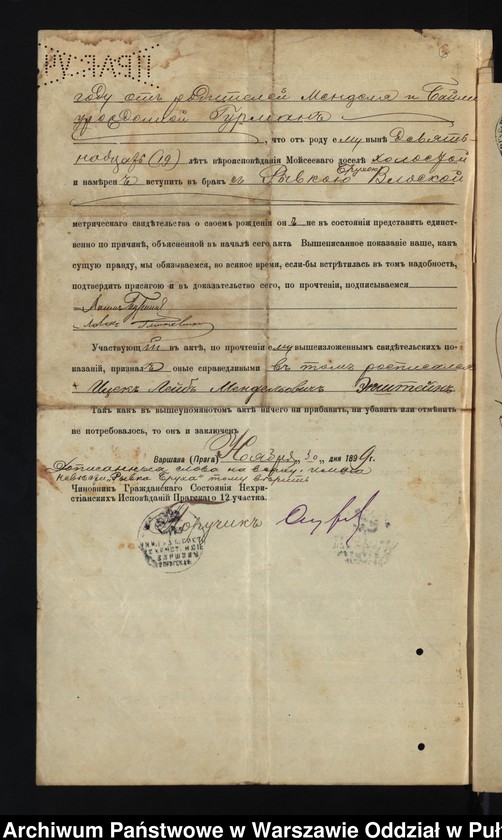 году отъ родителей Мендоля и Байли
урожденной Гурманъ
, что отъ роду ему нынѣ девять-
надцать (19) лѣтъ вѣроисповѣданія Мойсееваго доселѣ холостой
и намѣренъ вступить въ бракъ съ Рывкою Брухою Вльоской
метрическаго свидѣтельства о своемъ рожденіи онъ не въ состояніи представить единст-
венно по причинѣ, объясненной въ началѣ сего акта Вышеписанное показаніе наше, какъ
сущую правду, мы обязываемся, во всякое время, если-бы встрѣтилась въ томъ надобность,
подтвердить присягою и въ доказательство сего, по прочтеніи, подписываемся
Участвующій въ актѣ, по прочтеніи ему вышеизложенныхъ свидѣтельскихъ по-
казаній, призналъ оные справедливыми въ томъ росписался
Ицекъ Лейбъ Мендельовичъ Эпштейнъ
Такъ какъ въ вышеупомянотомъ актѣ ничего ни прибавить, ни убавить или отмѣнить
не потребовалось, то онъ и заключенъ
Варшава (Прага) Ноября „10„ дня 1899 г.
Дописанныя слова
Чиновникъ Гражданскаго Состоянія Нехри-
стіанскихъ Исповѣданій Прагскаго 12 участка.
Поручикъ
Archiwum Państwowe w Warszawie Oddział w Puł